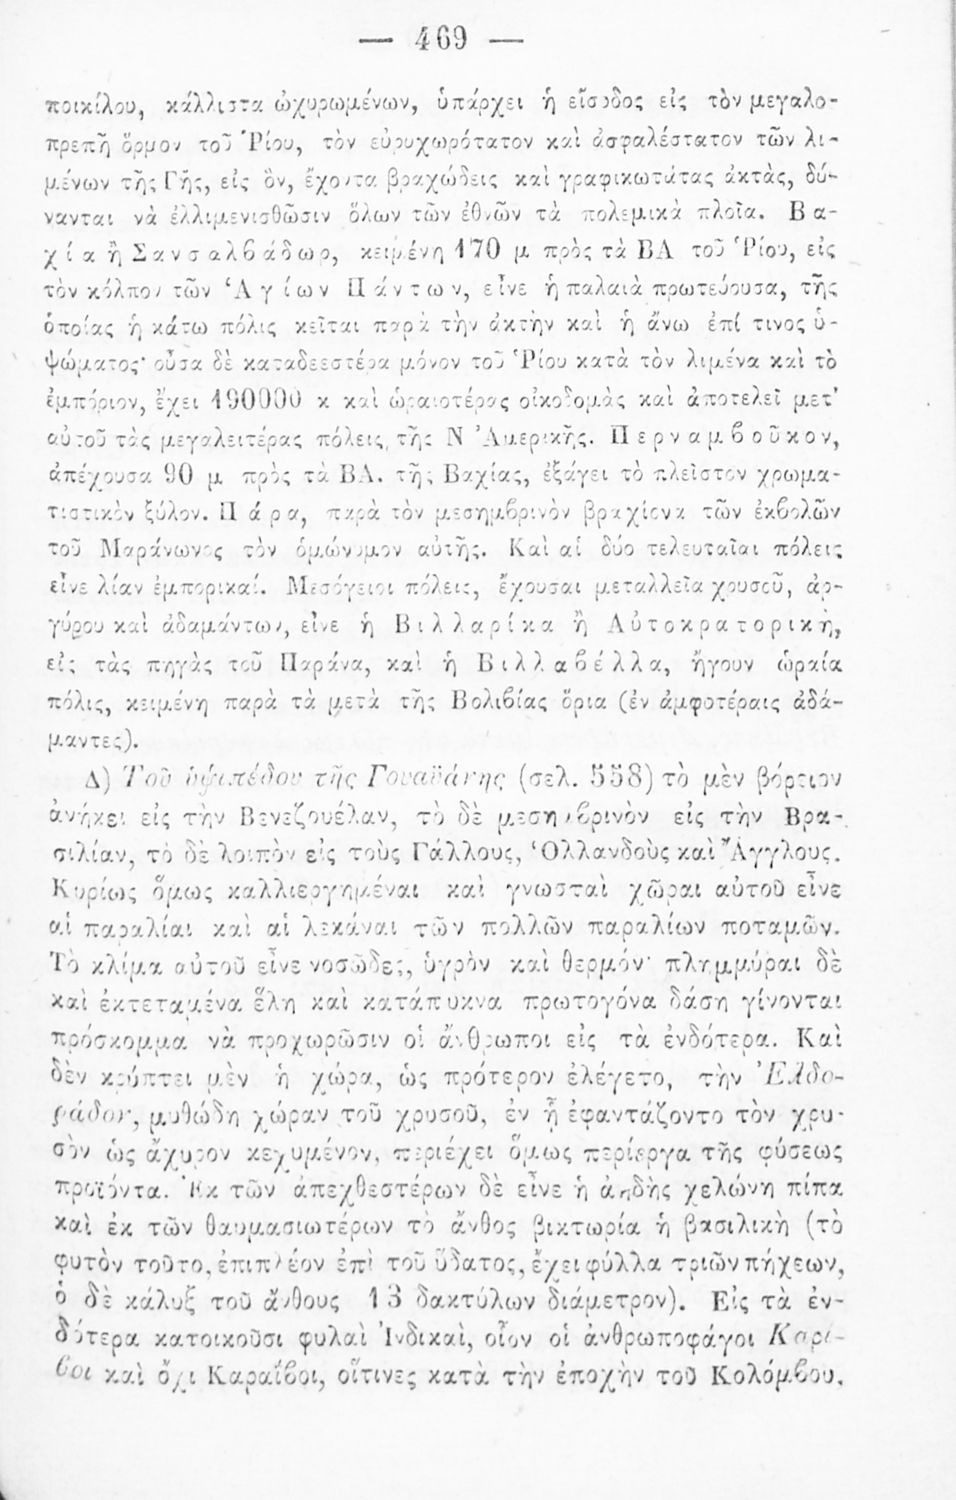 — 469 —
ποικίλου, κάλλιστα ὠχυρωμένων, ὑπάρχει ἡ εἴσοδος εἰς τὸν μεγαλο-
πρεπῆ ὅρμον τοῦ Ῥίου, τὸν εὐρυχωρότατον καὶ ἀσφαλέστατον τῶν λι-
μένων τῆς Γῆς, εἰς ὃν, ἔχοντα βραχώδεις καὶ γραφικωτάτας ἀκτὰς, δύ-
νανται νὰ ἐλλιμενισθῶσιν ὅλων τῶν ἐθνῶν τὰ πολεμικὰ πλοῖα. Βα-
χία ἢ Σανσαλβάδωρ, κειμένη 170 μ πρὸς τὰ ΒΑ τοῦ Ῥίου, εἰς
τὸν κόλπον τῶν Ἁγίων Πάντων, εἶνε ἡ παλαιὰ πρωτεύουσα, τῆς
ὁποίας ἡ κάτω πόλις κεῖται παρὰ τὴν ἀκτὴν καὶ ἡ ἄνω ἐπί τινος ὑ-
ψώματος· οὖσα δὲ καταδεεστέρα μόνον τοῦ Ῥίου κατὰ τὸν λιμένα καὶ τὸ
ἐμπόριον, ἔχει 190000 κ καὶ ὡραιοτέρας οἰκοδομὰς καὶ ἀποτελεῖ μετ'
αὐτοῦ τὰς μεγαλειτέρας πόλεις τῆς Ν Ἀμερικῆς. Περναμβοῦκον,
ἀπέχουσα 90 μ πρὸς τὰ ΒΑ. τῆς Βαχίας, ἐξάγει τὸ πλεῖστον χρωμα-
τιστικὸν ξύλον. Πάρα, παρὰ τὸν μεσημβρινὸν βραχίονα τῶν ἐκβολῶν
τοῦ Μαράνωνος τὸν ὁμώνυμον αὐτῆς. Καὶ αἱ δύο τελευταῖαι πόλεις
εἶνε λίαν ἐμπορικαί. Μεσόγειοι πόλεις, ἔχουσαι μεταλλεῖα χρυσοῦ, ἀρ-
γύρου καὶ ἀδαμάντων, εἶνε ἡ Βιλλαρίκα ἢ Αὐτοκρατορικὴ,
εἰς τὰς πηγὰς τοῦ Παράνα, καὶ ἡ Βιλλαβέλλα, ἤγουν ὡραία
πόλις, κειμένη παρὰ τὰ μετὰ τῆς Βολιβίας ὅρια (ἐν ἀμφοτέραις ἀδά-
μαντες).
Δ) Τοῦ ὑψιπέδου τῆς Γουαϋάνης (σελ. 558) τὸ μὲν βόρειον
ἀνήκει εἰς τὴν Βενεζουέλαν, τὸ δὲ μεσημβρινὸν εἰς τὴν Βρα-
σιλίαν, τὸ δὲ λοιπὸν εἰς τοὺς Γάλλους, Ὁλλανδοὺς καὶ Ἄγγλους.
Κυρίως ὅμως καλλιεργημέναι καὶ γνωσταὶ χῶραι αὐτοῦ εἶνε
αἱ παραλίαι καὶ αἱ λεκάναι τῶν πολλῶν παραλίων ποταμῶν.
Τὸ κλίμα αὐτοῦ εἶνε νοσῶδες, ὑγρὸν καὶ θερμόν· πλημμύραι δὲ
καὶ ἐκτεταμένα ἕλη καὶ κατάπυκνα πρωτογόνα δάση γίνονται
πρόσκομμα νὰ προχωρῶσιν οἱ ἄνθρωποι εἰς τὰ ἐνδότερα. Καὶ
δὲν κρύπτει μὲν ἡ χώρα, ὡς πρότερον ἐλέγετο, τὴν Ἐλδο-
ράδον, μυθώδη χώραν τοῦ χρυσοῦ, ἐν ᾗ ἐφαντάζοντο τὸν χρυ-
σὸν ὡς ἄχυρον κεχυμένον, περιέχει ὅμως περίεργα τῆς φύσεως
προϊόντα. Ἐκ τῶν ἀπεχθεστέρων δὲ εἶνε ἡ ἀηδὴς χελώνη πίπα
καὶ ἐκ τῶν θαυμασιωτέρων τὸ ἄνθος βικτωρία ἡ βασιλικὴ (τὸ
φυτὸν τοῦτο, ἐπιπλέον ἐπὶ τοῦ ὕδατος, ἔχει φύλλα τριῶν πήχεων,
ὁ δὲ κάλυξ τοῦ ἄνθους 13 δακτύλων διάμετρον). Εἰς τὰ ἐν-
δότερα κατοικοῦσι φυλαὶ Ἰνδικαὶ, οἷον οἱ ἀνθρωποφάγοι Καρί-
βοι καὶ ὄχι Καραΐβοι, οἵτινες κατὰ τὴν ἐποχὴν τοῦ Κολόμβου,